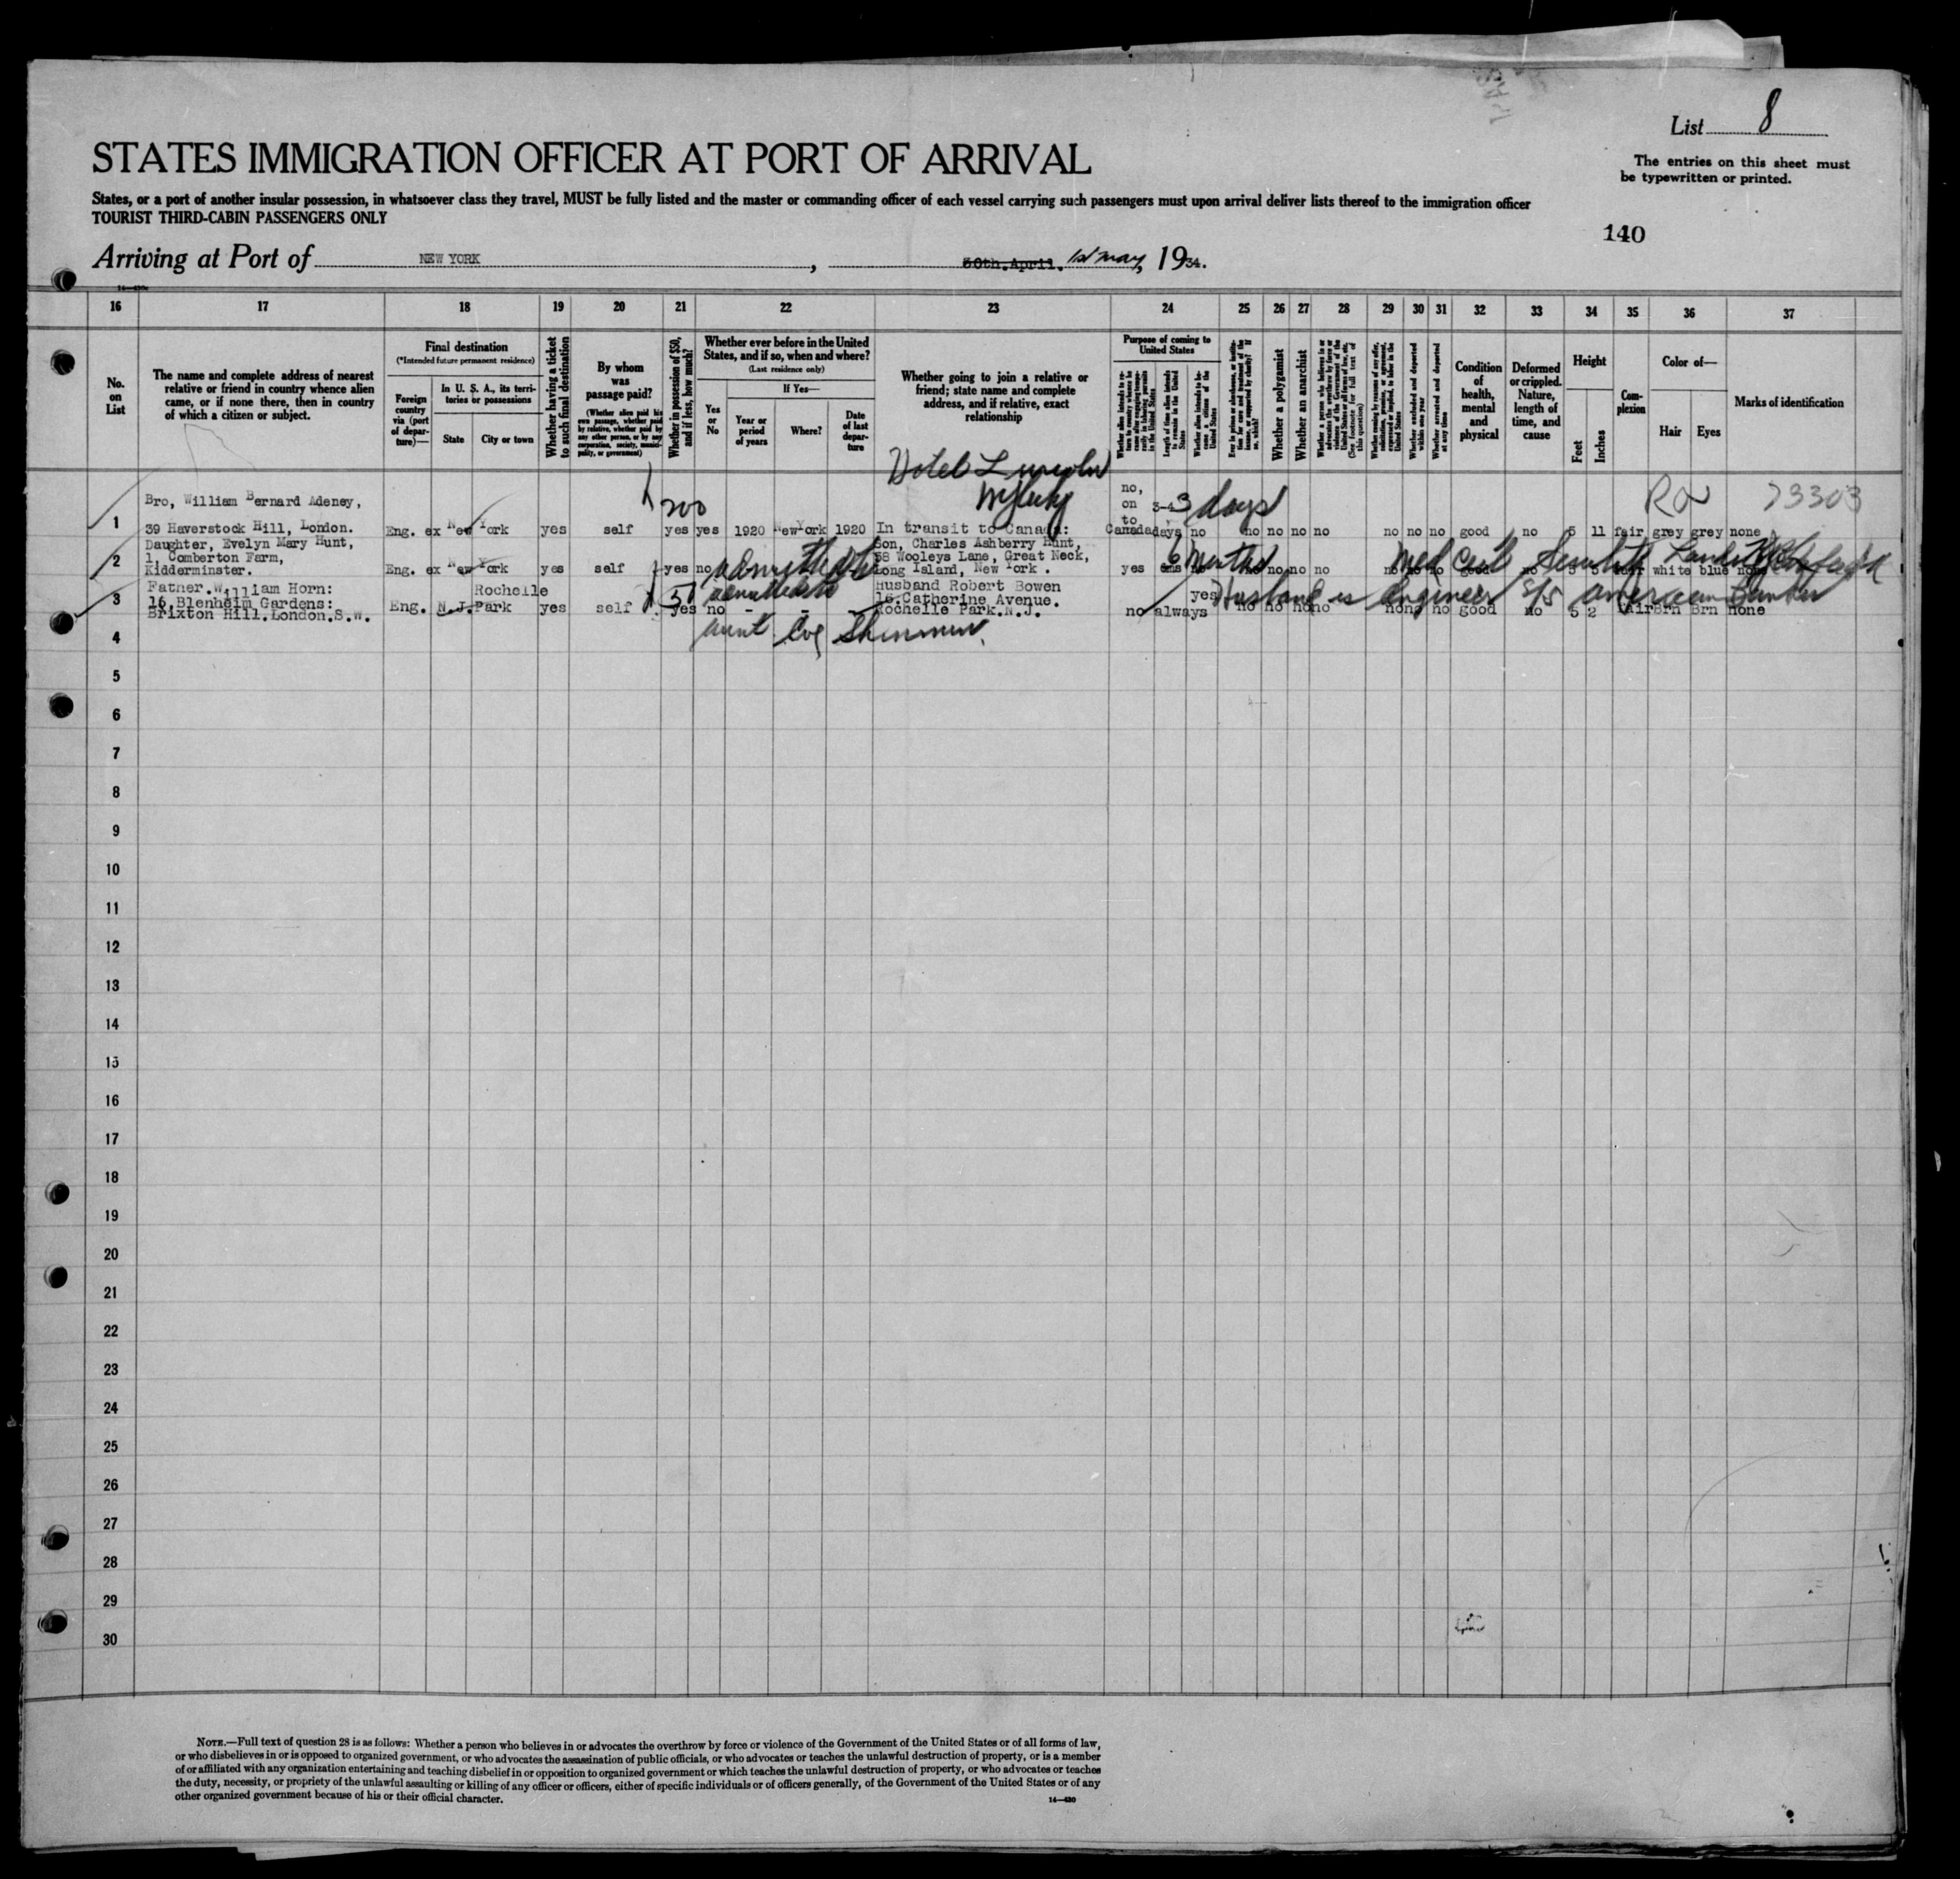 List 8
STATES IMMIGRATION OFFICER AT PORT OF ARRIVAL
The entries on this sheet must
be typewritten or printed.
States, or a port of another insular possession, in whatsoever class they travel, MUST be fully listed and the master or commanding officer of each vessel carrying such passengers must upon arrival deliver lists thereof to the immigration officer
TOURIST THIRD-CABIN PASSENGERS ONLY
140
Arriving at Port of NEW YORK, 30th. April. 1st May, 1934.
16 17 18 19 20 21 22 23 24 25 26 27 28 29 30 31 32 33 34 35 36 37
No.
on
List
The name and complete address of nearest
relative or friend in country whence alien
came, or if none there, then in country
of which a citizen or subject.
Final destination
(*Intended future permanent residence)
Foreign
country
via (port
of depar-
ture)—
In U. S. A., its terri-
tories or possessions
State
City or town
Whether having a ticket
to such final destination
By whom
was
passage paid?
(Whether alien paid his
own passage, whether paid
by relative, whether paid by
any other person, or by any
corporation, society, munici-
pality, or government)
Whether in possession of $50,
and if less, how much?
Whether ever before in the United
States, and if so, when and where?
(Last residence only)
Yes
or
No
If Yes—
Year or
period
of years
Where?
Date
of last
depar-
ture
Whether going to join a relative or
friend; state name and complete
address, and if relative, exact
relationship
Purpose of coming to
United States
Length of time alien intends
to remain in the United
States
Whether alien intends to be-
come a citizen of the
United States
Whether a polygamist
Whether an anarchist
Whether excluded and deported
within one year
Whether arrested and deported
at any time
Condition
of
health,
mental
and
physical
Deformed
or crippled.
Nature,
length of
time, and
cause
Height
Feet
Inches
Com-
plexion
Color of—
Hair
Eyes
Marks of identification
Hotel Lincoln
200
3 days
73303
1 Bro, William Bernard Adeney,
39 Haverstock Hill, London. Eng. ex New York yes self yes yes 1920 New York 1920 In transit to Canada: no, on to Canada 3-4 days no no no no no no no no good no 5 11 fair grey grey none
2 Daughter, Evelyn Mary Hunt,
1, Comberton Farm,
Kidderminster. Eng. ex New York yes self yes no
Son, Charles Ashberry Hunt,
58 Wooleys Lane, Great Neck,
Long Island, New York. yes 6 months no no no no white blue none
3 Father. William Horn:
16, Blenheim Gardens:
Brixton Hill. London. S.W. Eng. N.J. Rochelle Park yes self 50 yes no - - -
Husband Robert Bowen
16. Catherine Avenue.
Rochelle Park. N.J. no always yes no no no no no no no good no 5 2 fair Brn Brn none
Husband is Engineer S/S American Banker
aunt
4
5
6
7
8
9
10
11
12
13
14
15
16
17
18
19
20
21
22
23
24
25
26
27
28
29
30
NOTE.—Full text of question 28 is as follows: Whether a person who believes in or advocates the overthrow by force or violence of the Government of the United States or of all forms of law,
or who disbelieves in or is opposed to organized government, or who advocates the assassination of public officials, or who advocates or teaches the unlawful destruction of property, or is a member
of or affiliated with any organization entertaining and teaching disbelief in or opposition to organized government or which teaches the unlawful destruction of property, or who advocates or teaches
the duty, necessity, or propriety of the unlawful assaulting or killing of any officer or officers, either of specific individuals or of officers generally, of the Government of the United States or of any
other organized government because of his or their official character.
14—430